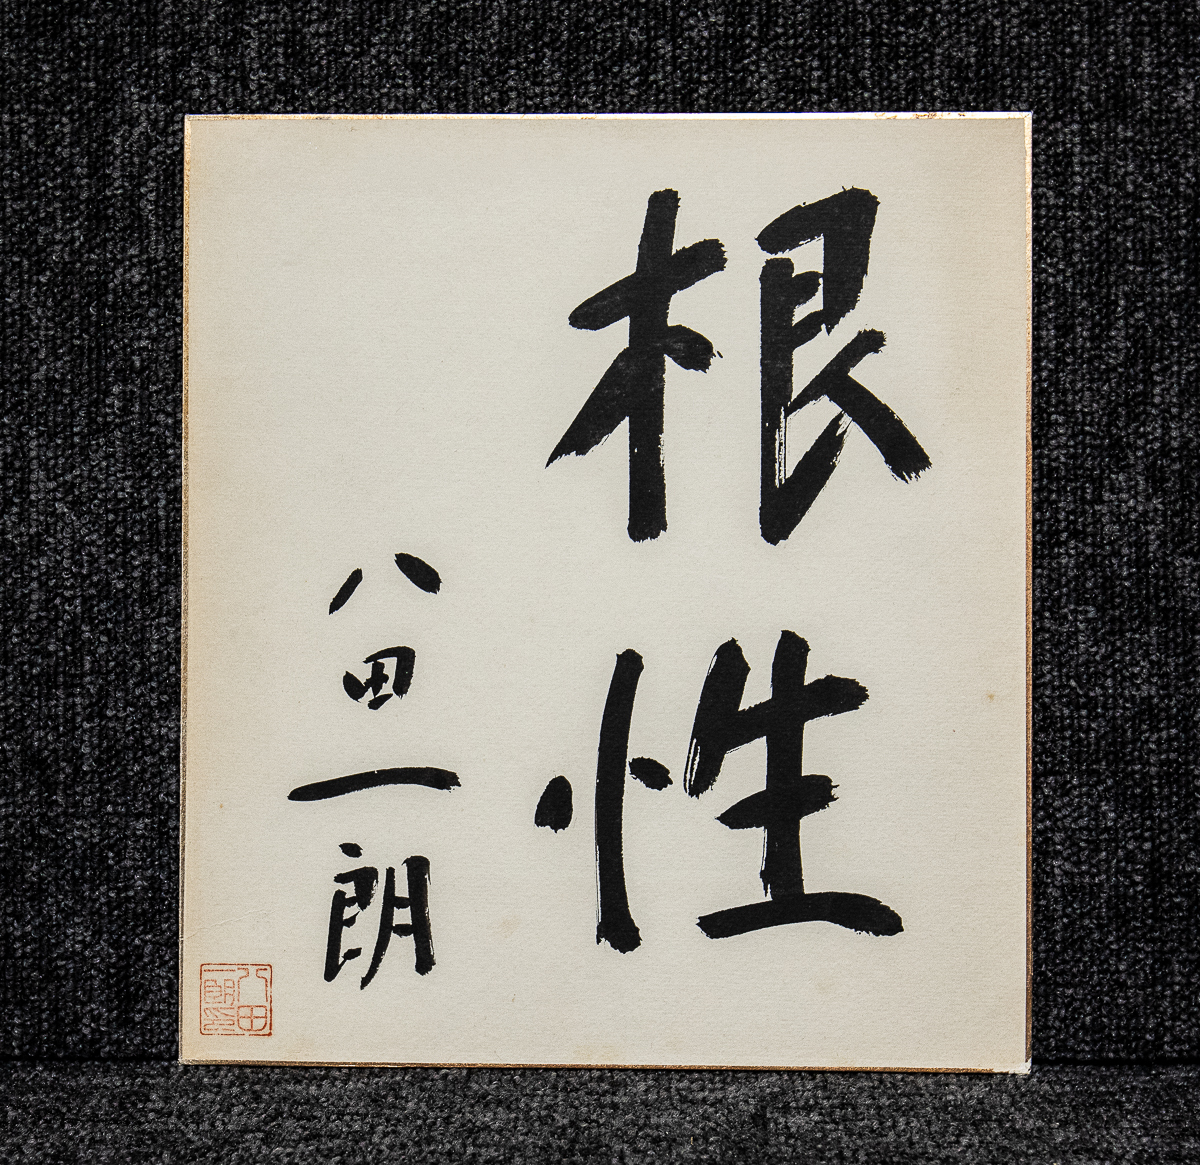 根性
八田一朗
八田一朗印